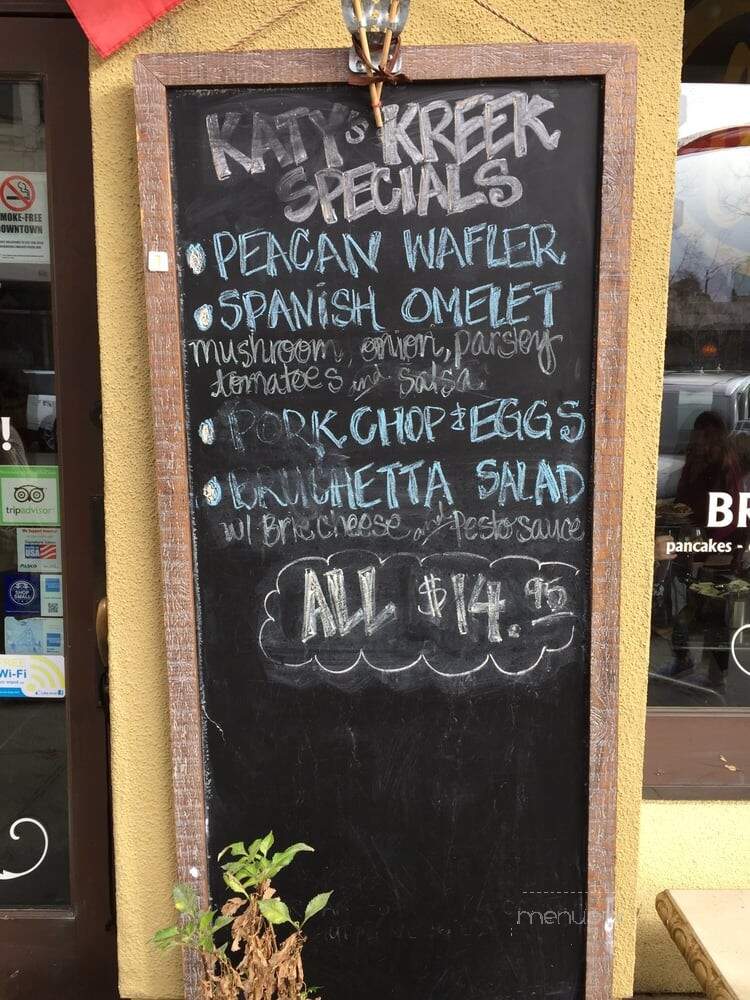 KATY's KREEK
SPECIALS
PEACAN WAFLER
SPANiSH OMELET
mushroom, onion, parsley
tomatoes and salsa
PORK CHOP & EGGS
BRUCHETTA SALAD
w/ Brie cheese and Pesto sauce
ALL $14.95
SMOKE-FREE
DOWNTOWN
!
tripadvisor
USA
SHOP
SMALL
Wi-Fi
BR
pancakes -
menu